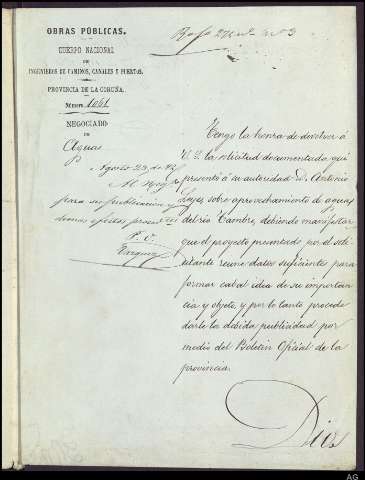 OBRAS PÚBLICAS.
CUERPO NACIONAL
DE
INGENIEROS DE CAMINOS, CANALES Y PUERTOS.
PROVINCIA DE LA CORUÑA.
Número 1061
NEGOCIADO
DE
Aguas
Agosto 23, de
Al Neg.
para su publicación y
demas efectos
P. O.
Vazquez
Tengo la honra de devolver á
V. S. la solicitud documentada que
presentó á su autoridad D. Antonio
sobre aprovechamiento de aguas
del rio Cambre, debiendo manifestar
que el proyecto presentado por el soli-
citante reune datos suficientes para
formar cabal idea de su importan-
cia y objeto, y por lo tanto procede
darle la debida publicidad por
medio del Boletin Oficial de la
provincia.
Dios
AG